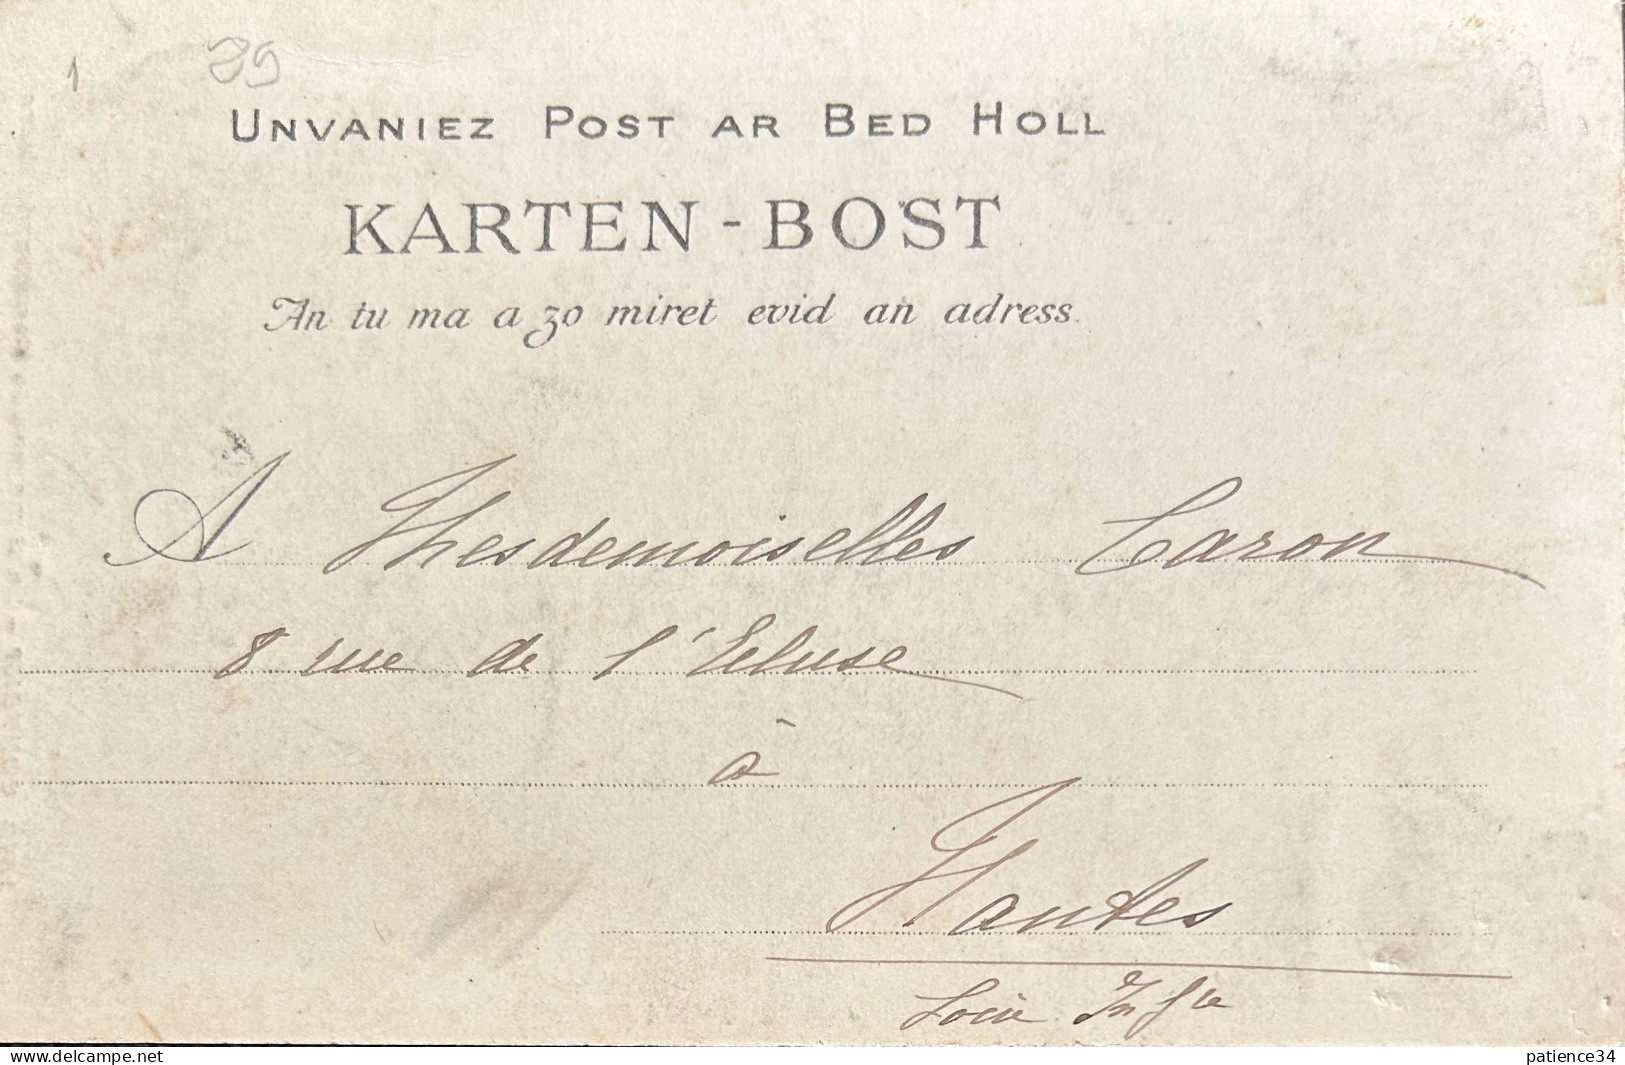 1 29
UNVANIEZ POST AR BED HOLL
KARTEN-BOST
An tu ma a zo miret evid an adress.
A Mesdemoiselles Caron
8 rue de l'Ecluse
à
Nantes
Loire Infre
www.delcampe.net
patience34